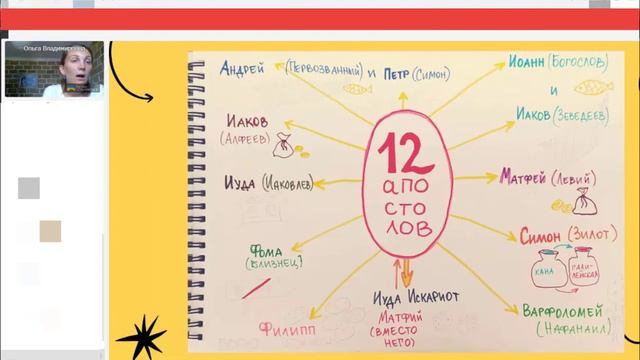 Ольга Владимировна
Андрей (Первозванный) и Петр (Симон)
Иоанн (Богослов)
и
Иаков (Зеведеев)
Иаков
(Алфеев)
12
апо
сто
лов
Иуда (Иаковлев)
Матфей (Левий)
Симон (Зилот)
Кана
Гали-
лейская
Фома
(Близнец)
Иуда Искариот
Матфий
(вместо
него)
Филипп
Варфоломей
(Нафанаил)